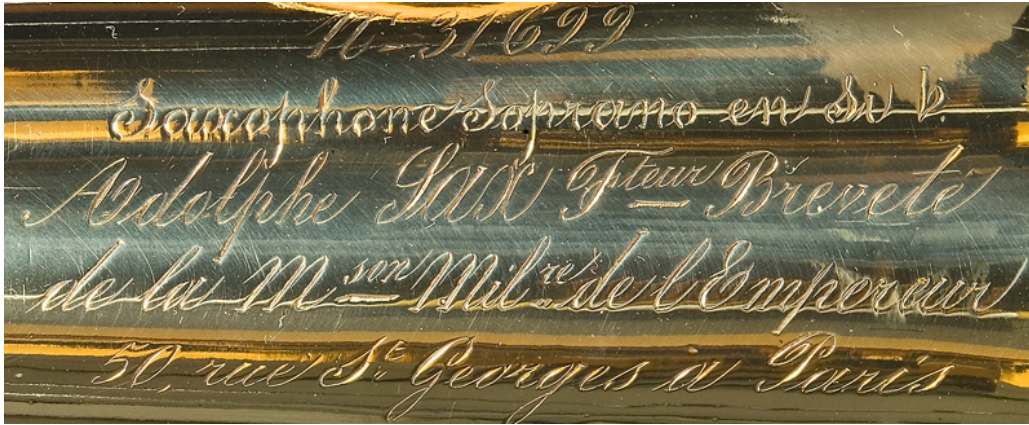 No 31699
Saxophone Soprano en Si b.
Adolphe SAX Fteur Breveté
de la Mson Milre de l'Empereur
50, rue St Georges a Paris